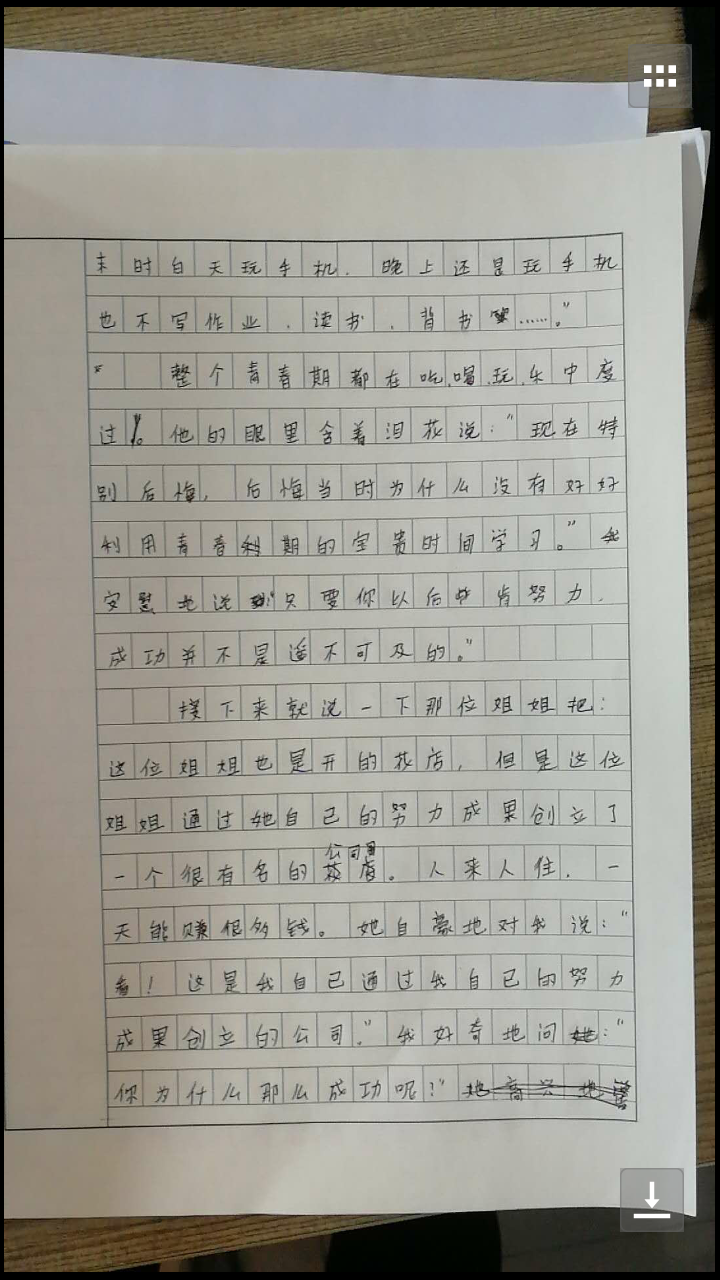 末时白天玩手机,晚上还是玩手机
也不写作业,读书,背书……。”
“整个青春期都在吃,喝,玩,乐中度
过。他的眼里含着泪花说:“现在特
别后悔,后悔当时为什么没有好好
利用青春期的宝贵时间学习。”我
安慰地说“只要你以后肯努力,
成功并不是遥不可及的。”
接下来就说一下那位姐姐把:
这位姐姐也是开的花店,但是这位
姐姐通过她自己的努力成果创立了
公司
一个很有名的花店。人来人住,一
天能赚很多钱。她自豪地对我说:“
看!这是我自己通过我自己的努力
成果创立的公司。”我好奇地问:“
你为什么那么成功呢?”她高兴地